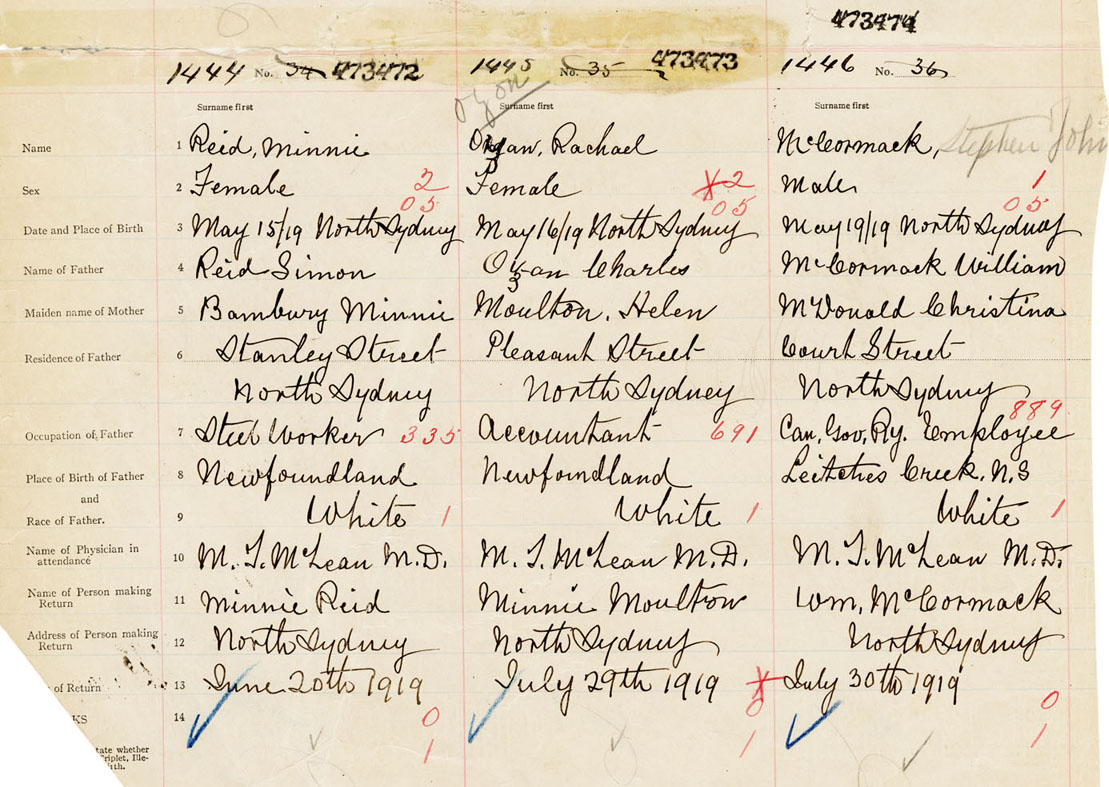 473474
1444 No. 34 473472 1445 No. 35 473473 1446 No. 36
Ozon
Surname first Surname first Surname first
Name 1 Reid, Minnie Rachael McCormack, Stephen John
Sex 2 Female 2 Female 2 Male 1
05 05 05
Date and Place of Birth 3 May 15/19 North Sydney May 16/19 North Sydney May 19/19 North Sydney
Name of Father 4 Reid Simon Charles McCormack William
Maiden name of Mother 5 Bambury Minnie Moulton, Helen McDonald Christina
Residence of Father 6 Stanley Street Pleasant Street Court Street
North Sydney North Sydney North Sydney
889
Occupation of Father 7 Steel Worker 335 Accountant 691 Can. Gov. Ry. Employee
Place of Birth of Father 8 Newfoundland Newfoundland Leitches Creek, N.S
and
Race of Father. 9 White 1 White 1 White 1
Name of Physician in
attendance 10 M. T. McLean M.D. M. T. McLean M.D. M. T. McLean M.D.
Name of Person making
Return 11 Minnie Reid Minnie Moulton Wm. McCormack
Address of Person making
Return 12 North Sydney North Sydney North Sydney
of Return 13 June 20th 1919 July 29th 1919 July 30th 1919
KS 14 0 0 0
1 1 1
tate whether
riplet, Ille-
ith.